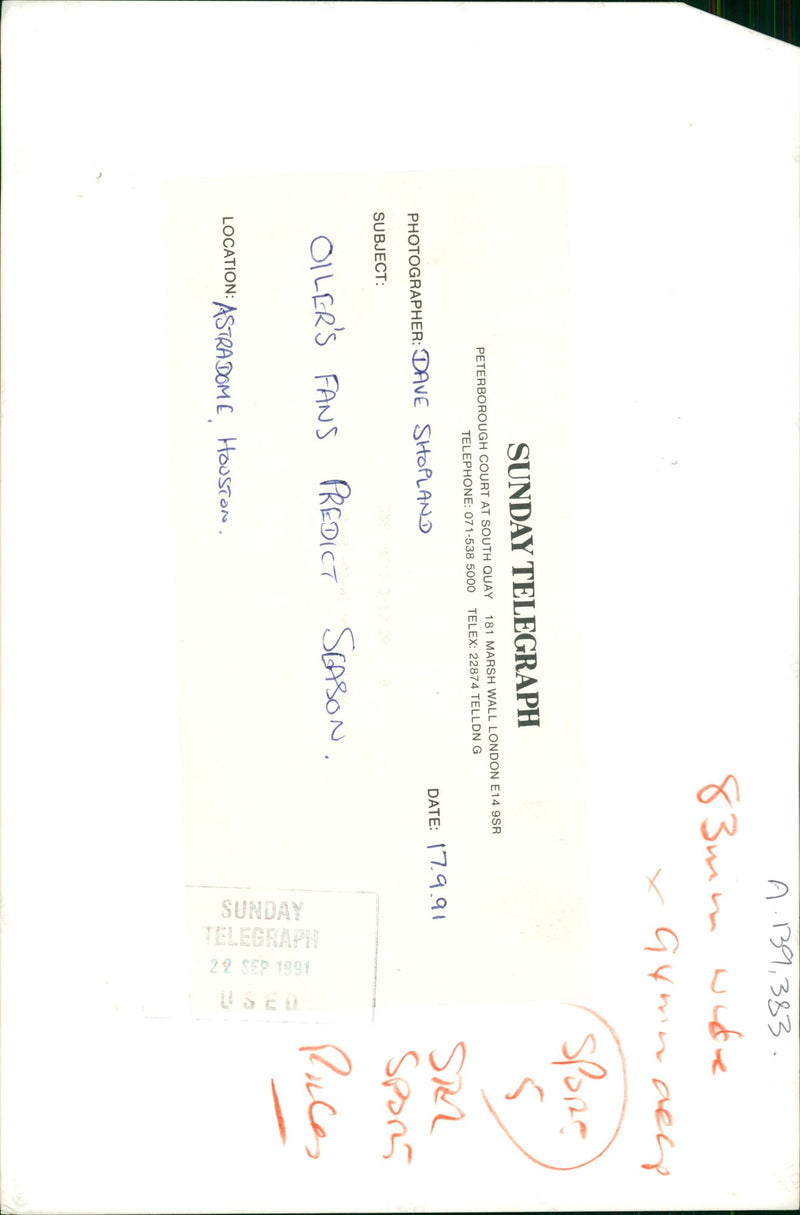 SUNDAY TELEGRAPH
PETERBOROUGH COURT AT SOUTH QUAY 181 MARSH WALL LONDON E14 9SR
TELEPHONE: 071-538 5000 TELEX: 22874 TELLDN G
PHOTOGRAPHER: DAVE SHOPLAND DATE: 17.9.91
SUBJECT:
OILER'S FANS PREDICT SEASON.
LOCATION: ASTRADOME, HOUSTON.
SUNDAY
TELEGRAPH
22 SEP 1991
USED
A.139,383.
83mm wide
x 94mm deep
SPORT
5
SPORT
RULES